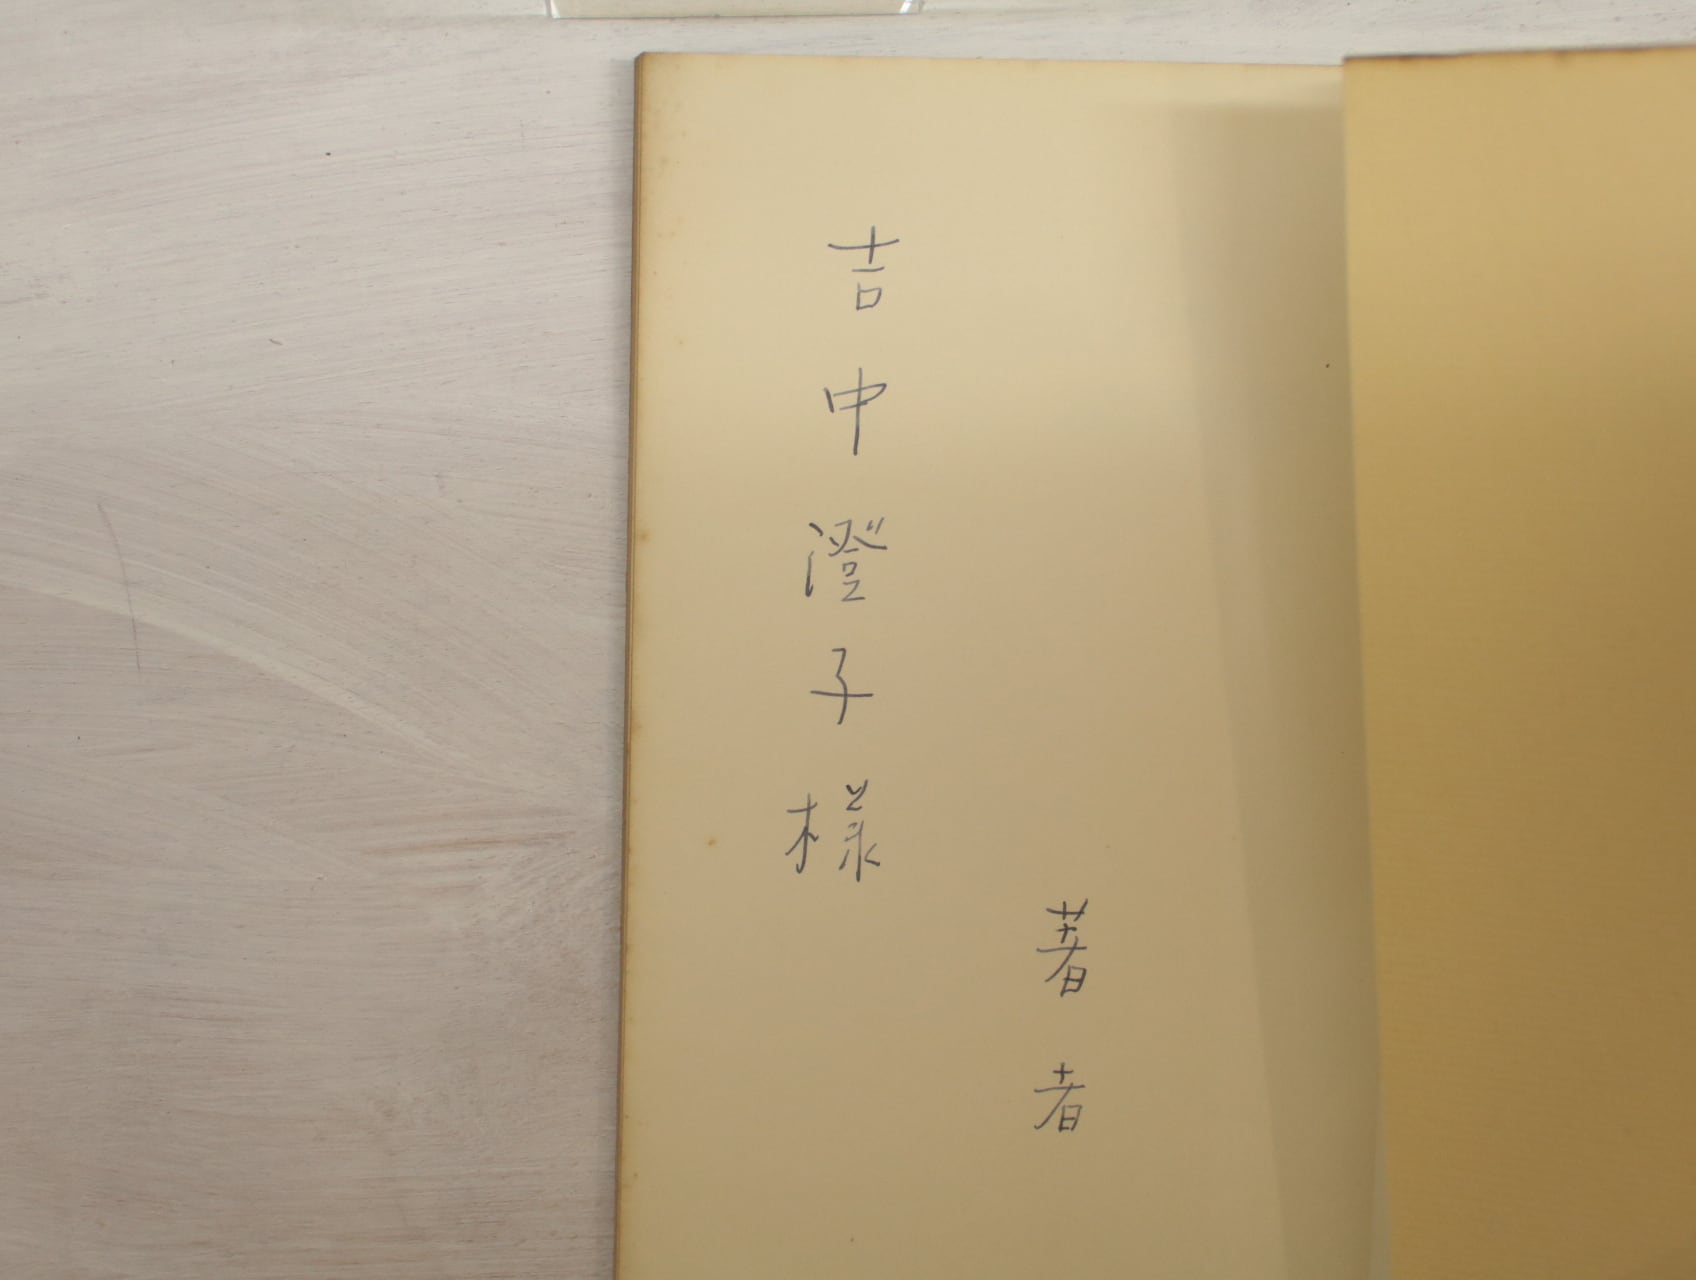 著者
吉中澄子様